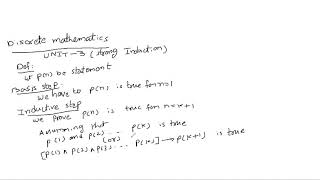 Discrete mathematics
UNIT-3 (strong Induction)
Def:
let p(n) be statement
Basis step:
we have to p(n) is true for n=1
Inductive step
we prove p(n) is true for n=k+1
Assuming that
p(1) and p(2) ... p(k) is true
(or)
[p(1) ∧ p(2) ∧ p(3) ... p(k)] → p(k+1) is true